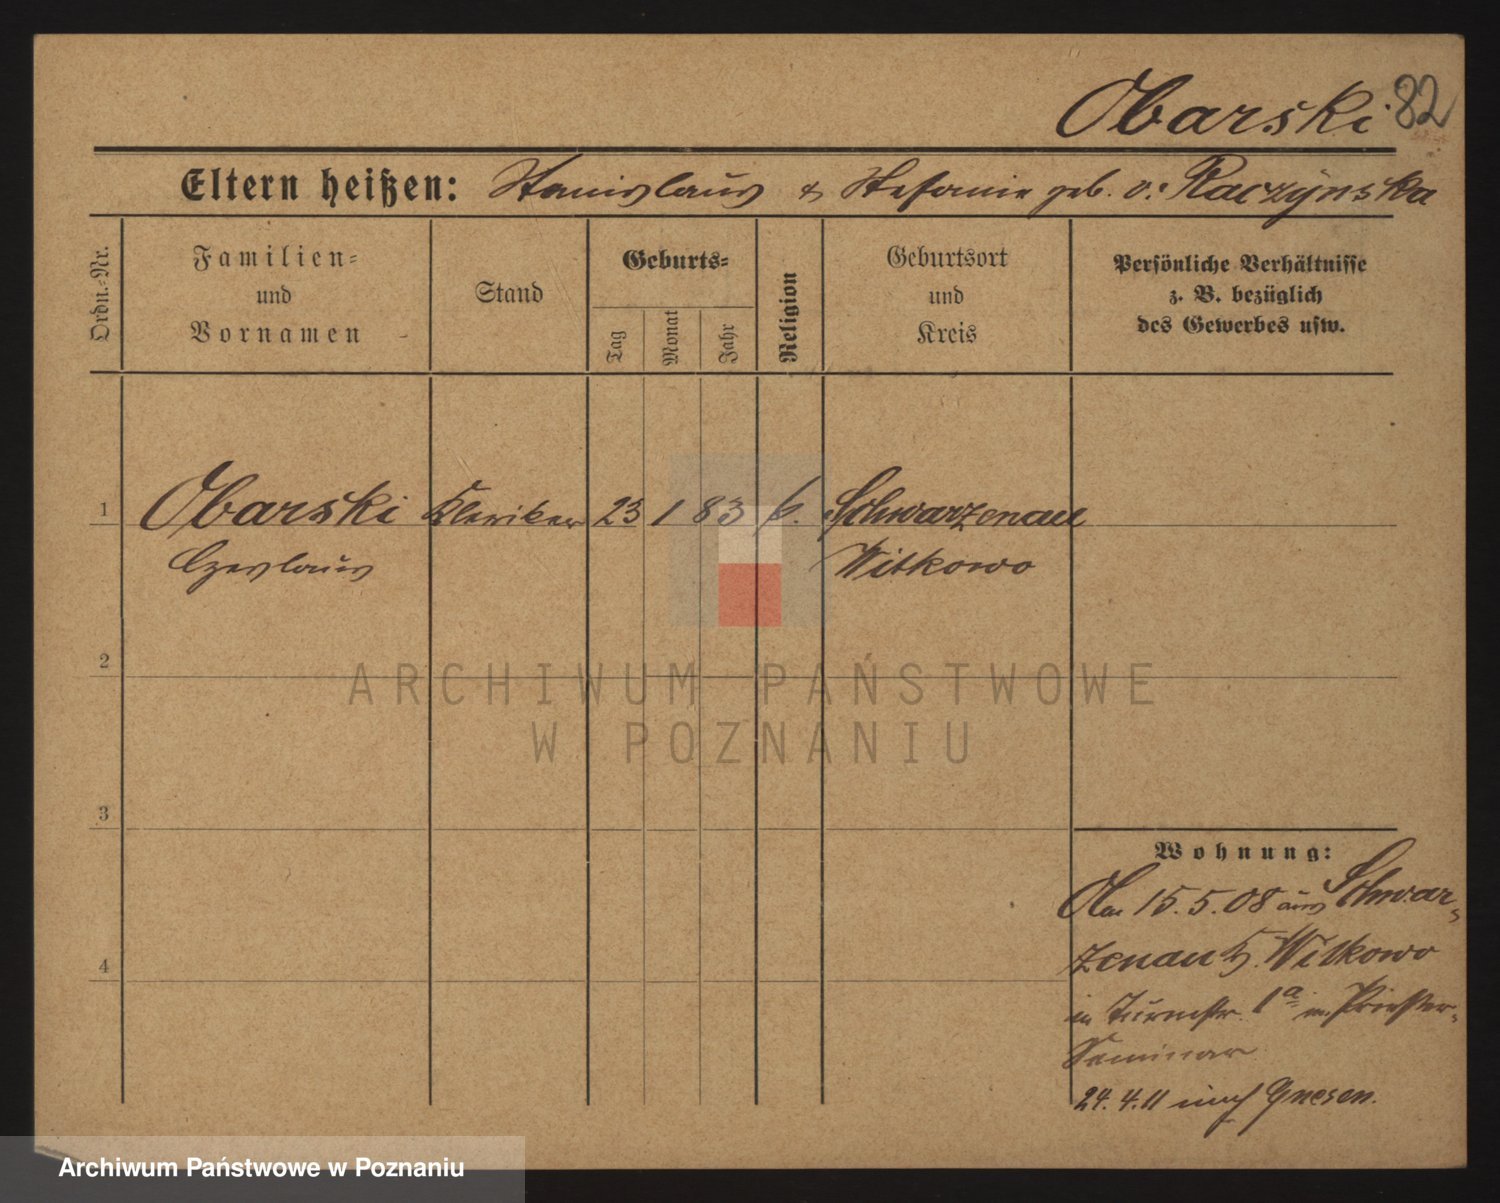 Obarski. 82
Eltern heißen: Stanislaus & Stefanie geb. v. Raczynska
Ordn.-Nr.
Familien-
und
Vornamen
Stand
Geburts-
Tag
Monat
Jahr
Religion
Geburtsort
und
Kreis
Persönliche Verhältnisse
z. B. bezüglich
des Gewerbes usw.
1 Obarski Kleriker 23 1 83 k. Schwarzenau
Czeslaus Witkowo
2
ARCHIWUM PAŃSTWOWE
W POZNANIU
3
Wohnung:
15.5.08 aus Schwar-
zenau K. Witkowo
in Turmstr. 1a i. Priester-
Seminar
4
24.4.11 nach Gnesen.
Archiwum Państwowe w Poznaniu